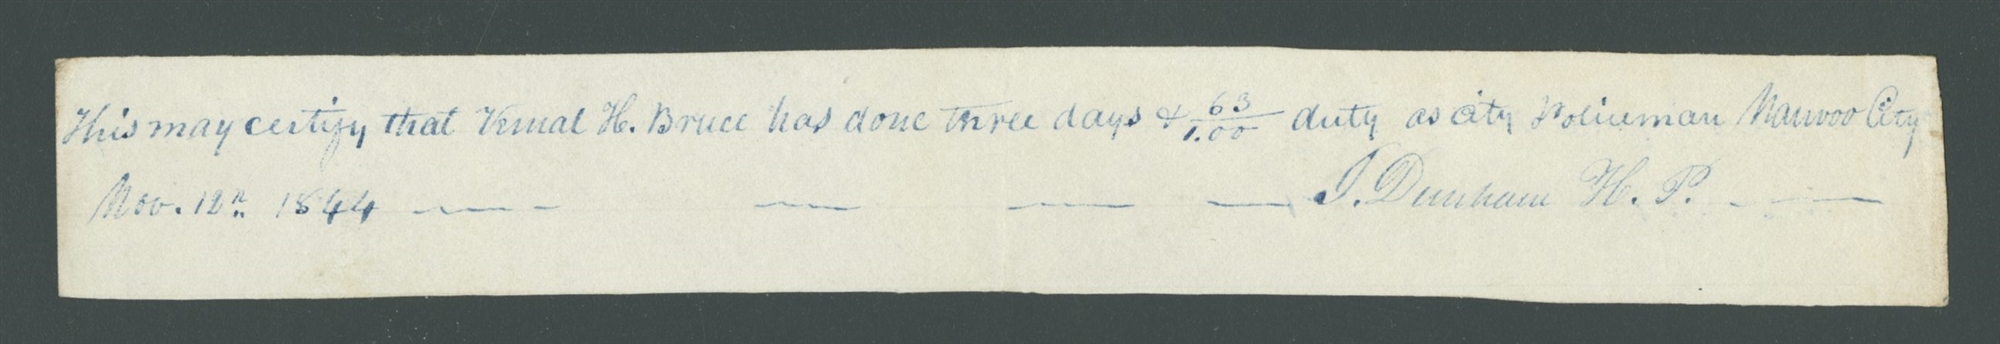 This may certify that Vernal H. Bruce has done three days & 63/1.00 duty as city Policeman Nauvoo City
Nov. 12th 1844 — — — — J. Dunham H. P. —